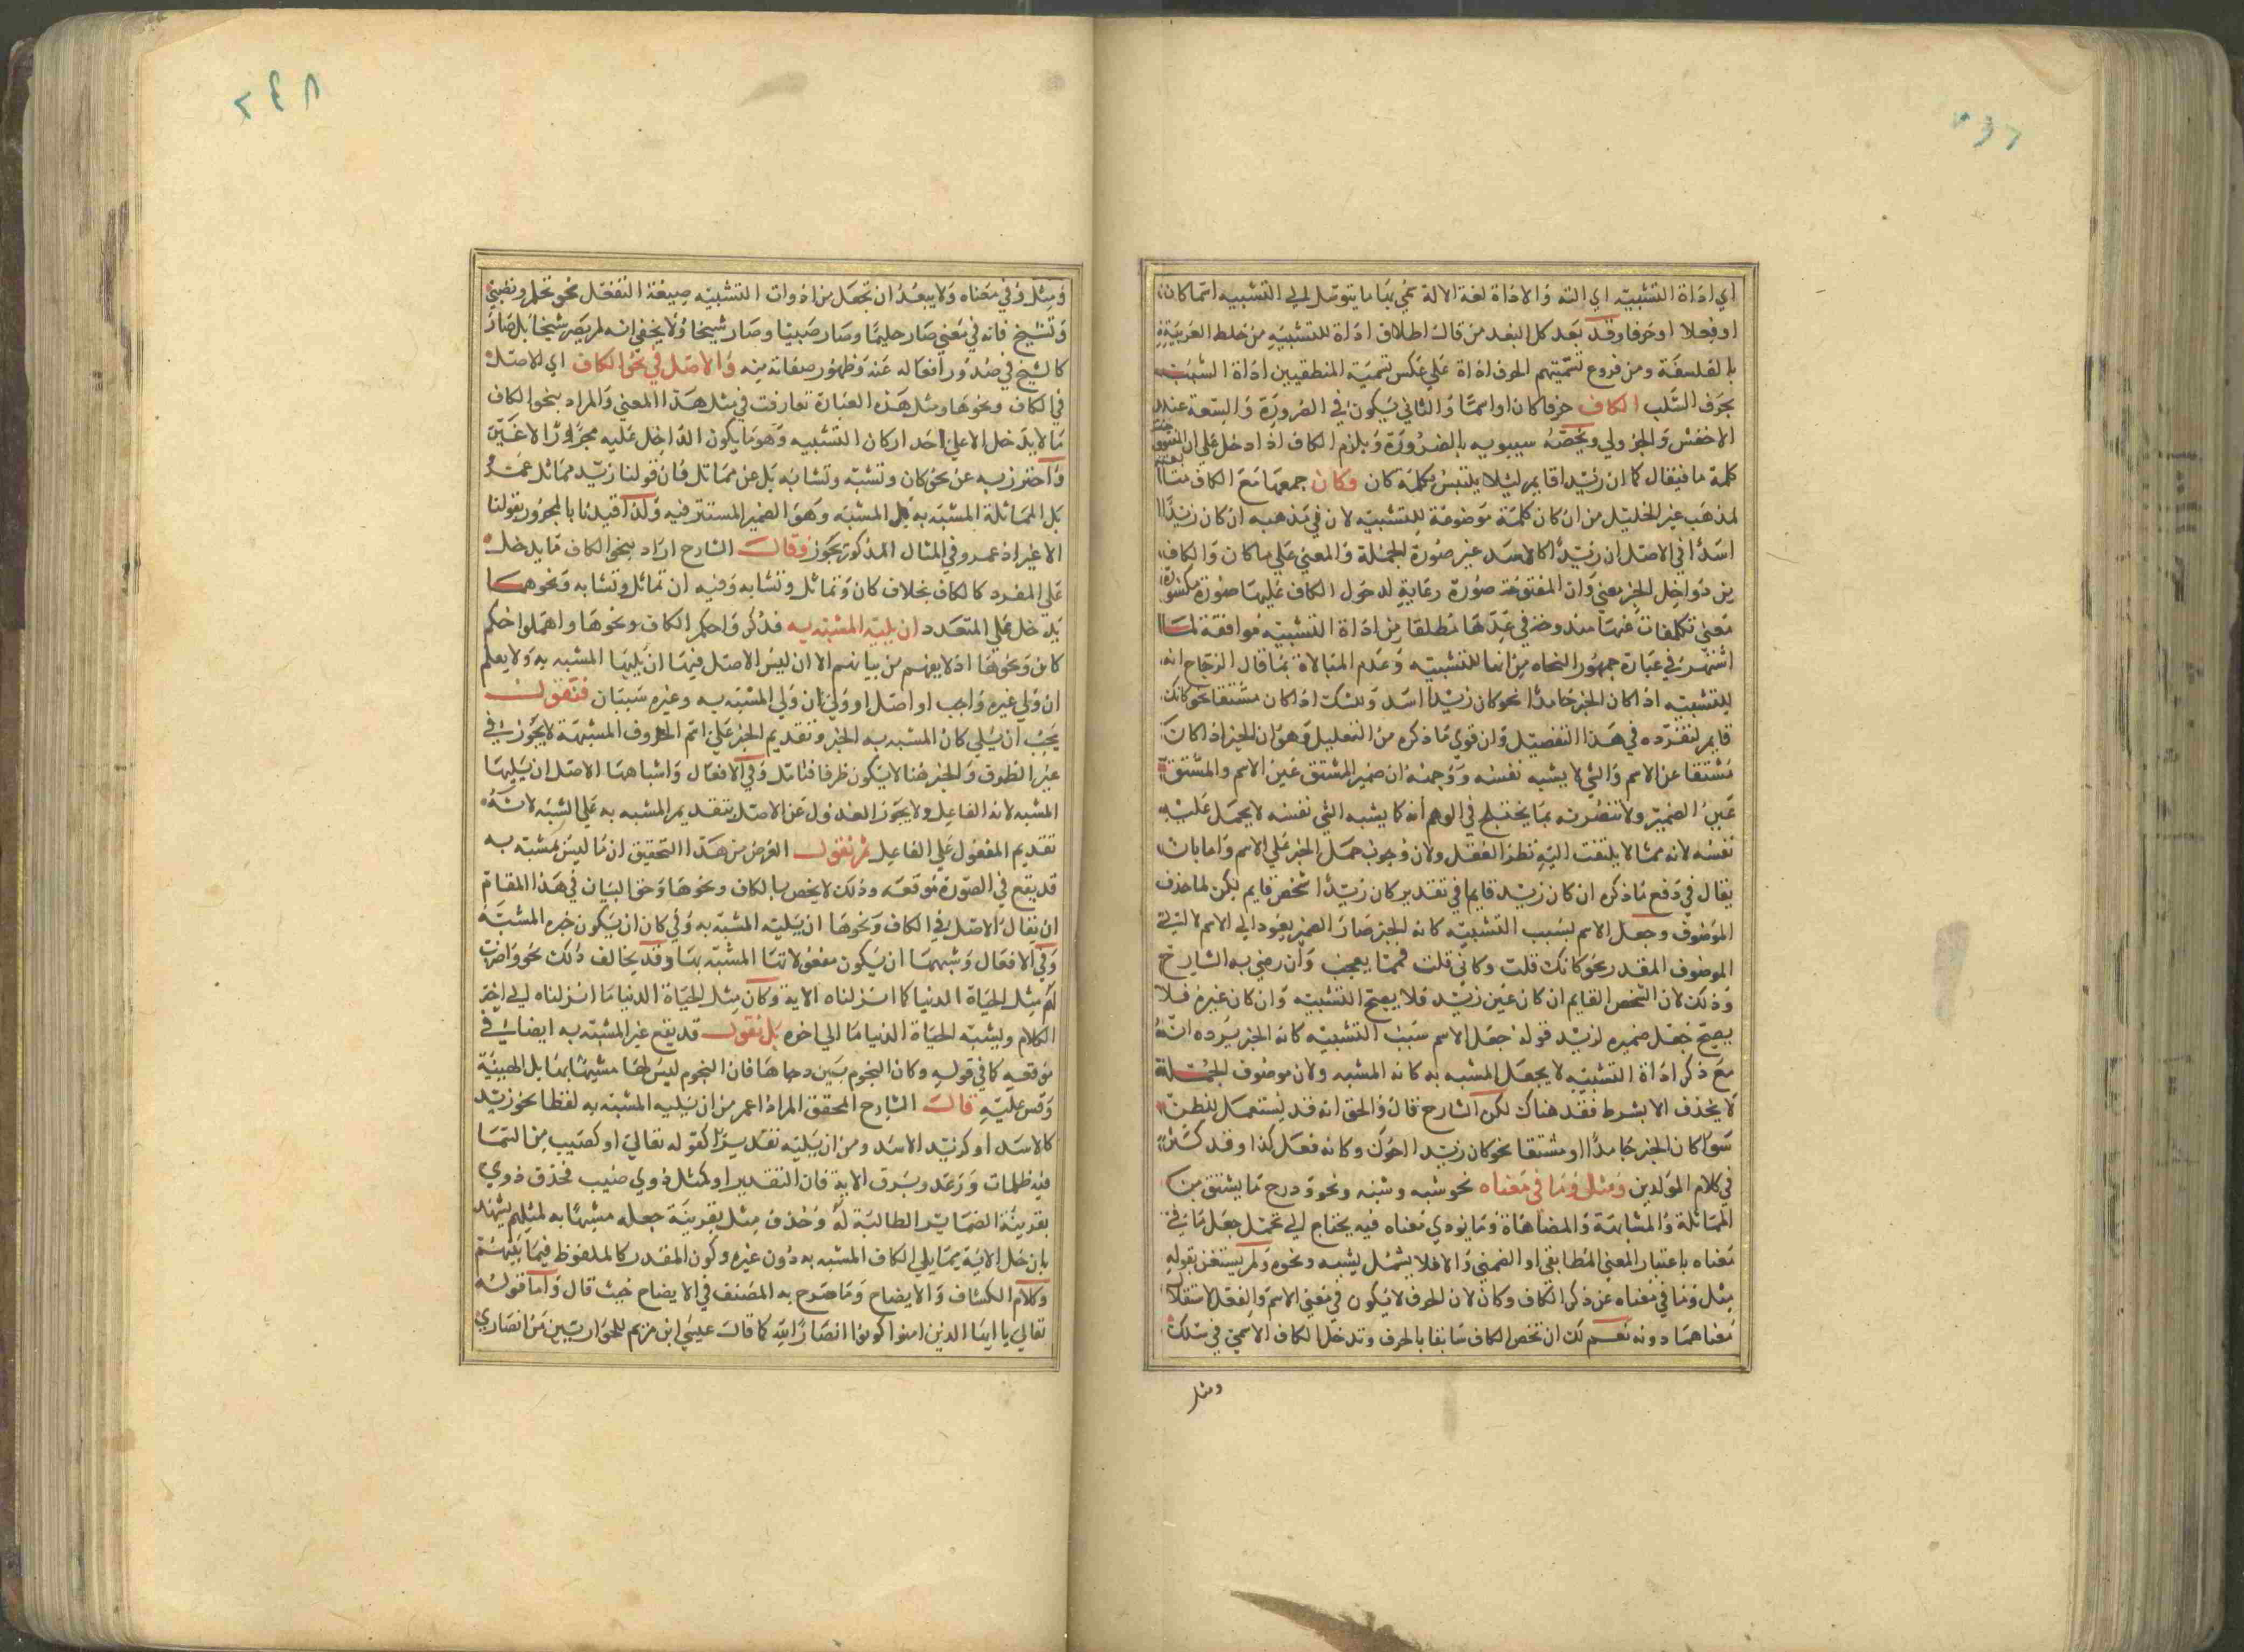 اي اداة التشبيه اي الته والاداة لغة الالة سمي بها ما يتوصل الي التشبيه اسما كان
او فعلا او حرفا وقد بعد كل البعد من قال اطلاق اداة للتشبيه من خلط العربية
بالفلسفة ومن فروع تسميتهم الحرف اداة علي عكس تسمية المنطقيين اداة السلب
بحرف السلب الكاف حرفا كان او اسما والثاني يكون في الضرورة والسعة عند
الاخفش والجزولي ويخصه سيبويه بالضرورة ويلزم الكاف اذا دخل علي ان المفتوحة
كلمة ما فيقال كما ان زيدا قايم لئلا يلتبس بكلمة كان وكان جمعها مع الكاف
لمذهب غير الخليل من ان كان كلمة موضوعة للتشبيه لان في مذهبه ان كان زيدا
اسدا في الاصل ان زيدا كالاسد غير صورة الجملة والمعني علي ما كان والكاف
من دواخل الخبر معني وان المفتوحة صورة رعاية لدخول الكاف عليها صورة مكسورة
معني تكلفات عنها مندوحة في عدها مطلقا من اداة التشبيه موافقة لما
اشتهر في عبارة جمهور النحاه من انها للتشبيه وعدم المبالاة بما قال الزجاج انه
للتشبيه اذا كان الخبر جامدا نحو كان زيدا اسد وللشك اذا كان مشتقا نحو كانك
قايم لتفرده في هذا التفصيل وان قوي ما ذكره من التعليل وهو ان الخبر اذا كان
مشتقا عن الاسم والشي لا يشبه نفسه ووجهه ان ضمير المشتق عين الاسم والمشتق
عين الضمير ولا تنصرنه بما يختلج في الوهم انه كما يشبه الشي نفسه لا يحمل عليه
نفسه لانه مما لا يلتفت اليه نظر العقل ولان وجوب حمل الخبر علي الاسم واما بان
يقال في دفع ما ذكره ان كان زيد قايما في تقدير كان زيدا شخص قايم لكن لما حذف
الموصوف وجعل الاسم بسبب التشبيه كانه الخبر صار الضمير يعود الي الاسم لا الي
الموصوف المقدر نحو كانك قلت وكاني قلت فمما يعجب وان رضي به الشارح
وذلك لان الشخص القايم ان كان عين زيد فلا يصح التشبيه وان كان غيره فلا
يصح جعل ضميره لزيد قوله جعل الاسم سبب التشبيه كانه الخبر يرده انه
مع ذكر اداة التشبيه لا يجعل المشبه به كانه المشبه ولان موصوف الجملة
لا يحذف الا بشرط فقد هناك لكن الشارح قال والحق انه قد يستعمل للظن
سوا كان الخبر جامدا او مشتقا نحو كان زيدا اخوك وكانه فعل كذا وقد كثر
في كلام المولدين ومثل وما في معناه نحو شبه وشبه ونحو ودرج ما يشتق من
المماثلة والمشابهة والمضاهاة وما يودي معناه فيه يحتاج الي تمحل جعل ما في
معناه باعتبار المعني المطابقي او الضمني والا فلا يشمل يشبه ونحوه ولم يستغن بقوله
مثل وما في معناه عن ذكر الكاف وكان لان الحرف لا يكون في معني الاسم والفعل لاستقلال
معناهما دونه نعم لك ان تخص الكاف سابقا بالحرف وتدخل الكاف الاسمي في سلك
ومثل
٢٤٨
ومثل وفي معناه ولا يبعد ان تجعل من ادوات التشبيه صيغة التفعل نحو تحلم وتصبي
وتشيخ فانه في معني صار حليما وصار صبيا وصار شيخا ولا يخفي انه لم يصر شيخا بل صار
كالشيخ في صدور افعاله عنه وظهور صفاته منه والاصل في نحو الكاف اي الاصل
في الكاف ونحوها ومثل هذه العبارة تعارفت في مثل هذا المعني والمراد بنحو الكاف
ما لا يدخل الا علي احد اركان التشبيه وهو ما يكون الداخل عليه مجرورا لا غير
واحترز به عن نحو كان وتشبه وتشابه بل عن مماثل فان قولنا زيد مماثل عمرو
بل المماثلة المشبه به بل المشبه وهو الضمير المستتر فيه ولذا قيدنا بالمجرور بقولنا
الا غير اذ عمرو في المثال المذكور يجوز وقال الشارح اراد بنحو الكاف ما يدخل
علي المفرد كالكاف بخلاف كان وتماثل وتشابه وفيه ان تماثل وتشابه ونحوهما
يدخل علي المتعدد ان يليه المشبه به فذكروا حكم الكاف ونحوها واهملوا حكم
كان ونحوها اذ لا يفهم من بيانهم الا ان ليس الاصل فيها ان يليها المشبه به ولا يعلم
ان ولي غيره واجب او اصل او ولي ان ولي المشبه به وغيره سيان فنقول
يجب ان يلي كان المشبه به الخبر وتقديم الخبر علي اسم الحروف المشبهة لا يجوز في
غير الظروف والخبر هنا لا يكون ظرفا فتامل وفي الافعال واشباهها الاصل ان يليها
المشبه لانه الفاعل ولا يجوز العدول عن الاصل بتقديم المشبه به علي الشبه لانه
تقديم المفعول علي الفاعل ثم نقول الغرض من هذا التحقيق ان ما ليس مشبه به
قد يقع في الصورة موقعه وذلك لا يخص بالكاف ونحوها وحق البيان في هذا المقام
ان يقال الاصل في الكاف ونحوها ان يليه المشبه به وفي كان ان يكون خبره المشبه
وفي الافعال وشبهها ان يكون مفعولاتها المشبه بها وقد يخالف ذلك نحو واضرب
لهم مثل الحياة الدنيا كما انزلناه الاية وكان مثل الحياة الدنيا ما انزلناه الي اخر
الكلام ويشبه الحياة الدنيا ما الي اخره بل نقول قد يقع غير المشبه به ايضا في
موقعه كما في قوله وكان النجوم بين دجاها فان النجوم ليس لها مشبها بها بل الهيئة
وقس عليه قال الشارح المحقق المراد اعم من ان يليه المشبه به لفظا نحو زيد
كالاسد او كزيد الاسد ومن ان يليه تقديرا كقوله تعالي او كصيب من السما
فيه ظلمات ورعد وبرق الاية فان التقدير او كمثل ذوي صيب فحذف ذوي
بقرينة الضماير الطالبة له وحذف مثل بقرينة جعله مشبها به لمثلهم يشهد
بان جل الاية مما يلي الكاف المشبه به دون غيره وكون المقدر كالملفوظ فيما بينهم
وكلام الكشاف والايضاح وما صرح به المصنف في الايضاح حيث قال واما قوله
تعالي يا ايها الذين امنوا كونوا انصارا لله كما قال عيسي ابن مريم للحواريين من انصاري